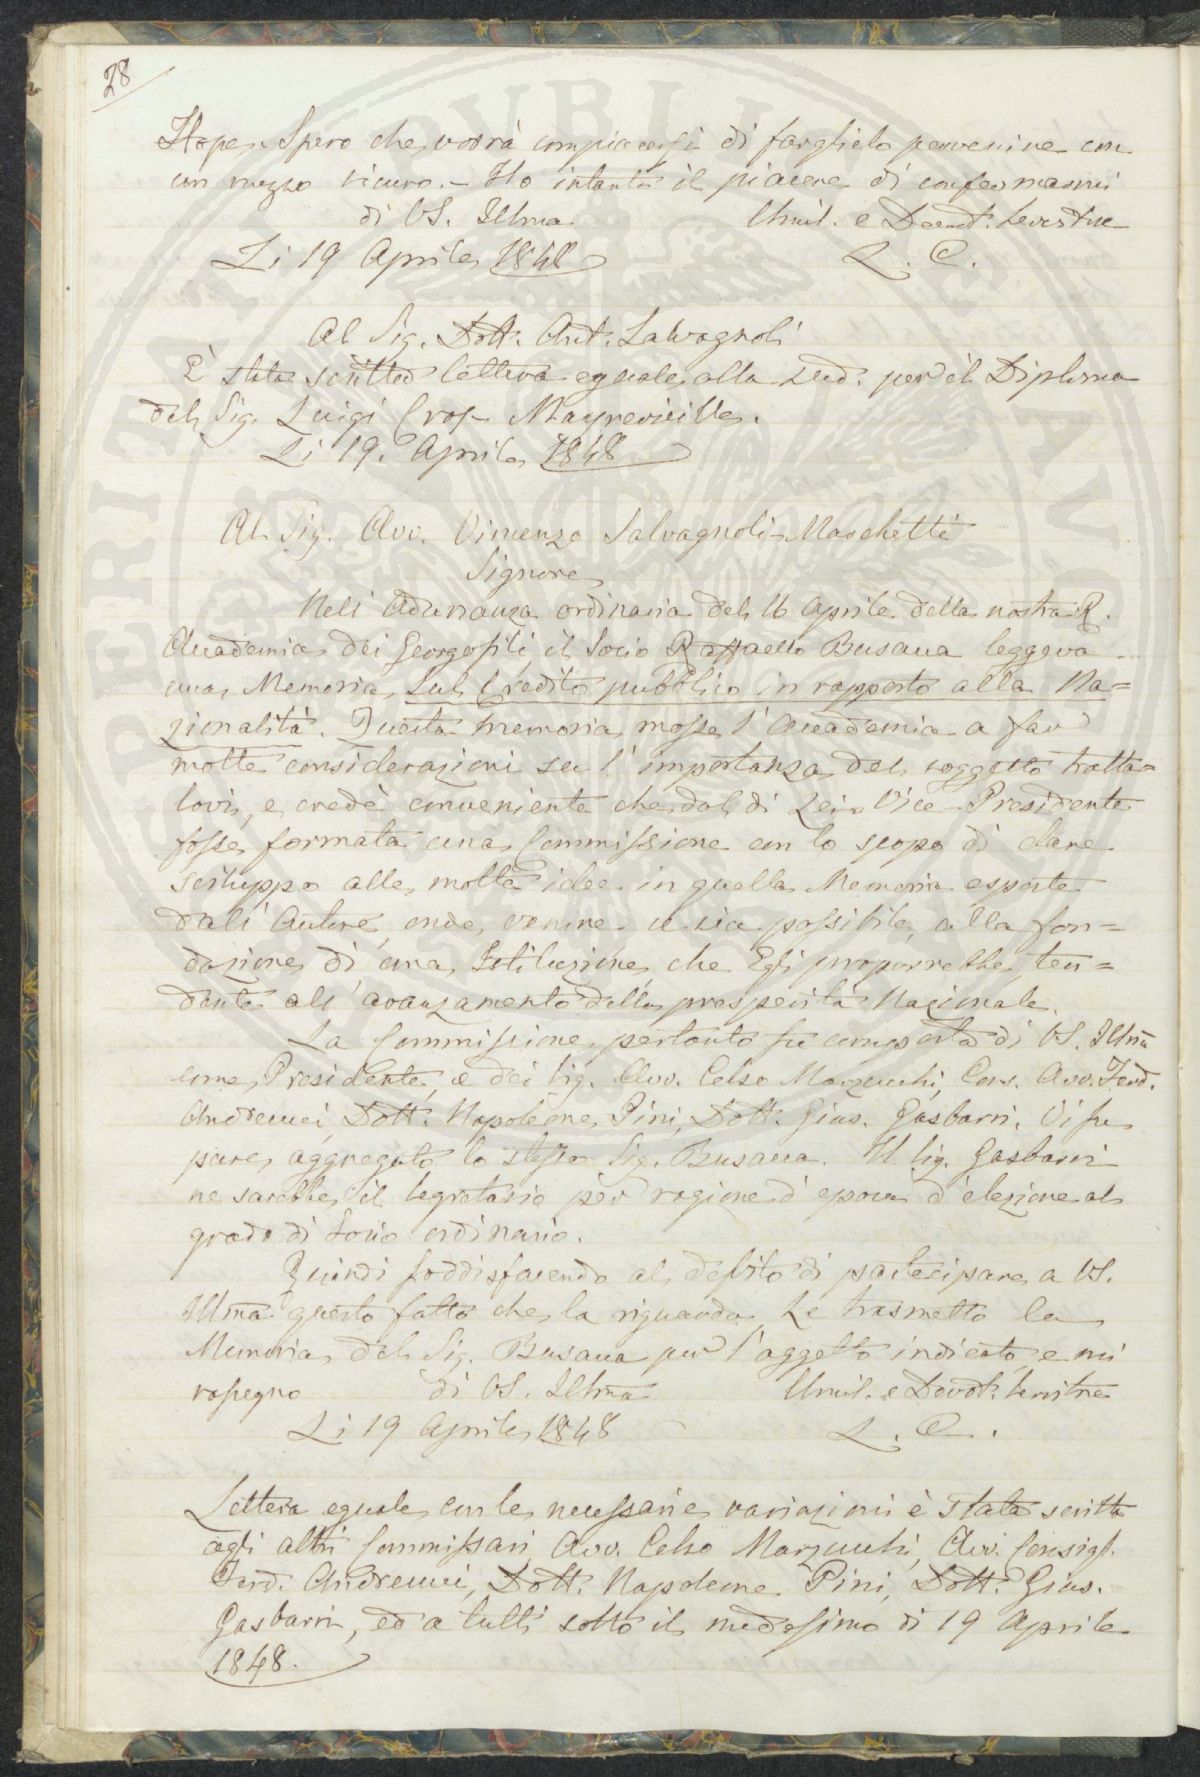 28
Hope. Spero che vorrà compiacersi di farglielo pervenire con
un mezzo sicuro. – Ho intanto il piacere di confermarmi
di VS. Illma Umil. e Devot. Servitre
Li 19 Aprile 1848 L. C.
Al Sig. Dott. Ant. Salvagnoli
È stata scritta lettera eguale alla sud. per il Diploma
del Sig. Luigi Cros Mayrevieille.
Li 19. Aprile 1848
Al Sig. Avv. Vincenzo Salvagnoli-Marchetti
Signore
Nell' Adunanza ordinaria del 16 Aprile della nostra R.
Accademia dei Georgofili il Socio Raffaello Busacca leggeva
una Memoria Sul Credito pubblico in rapporto alla Na=
zionalità. Questa memoria mosse l' Accademia a far
molte considerazioni su l' importanza del soggetto tratta=
tovi, e credè conveniente che dal di Lei Vice-Presidente
fosse formata una Commissione con lo scopo di dare
sviluppo alle molte idee in quella Memoria esposte
dall' Autore, onde venire se sia possibile, alla fon=
dazione di una Istituzione che Egli proporrebbe ten=
dente all' avanzamento della prosperità Nazionale.
La Commissione pertanto fu composta di VS. Illma
come Presidente, e dei Sig. Avv. Celso Marzucchi, Cons. Avv. Ferd.
Andreucci, Dott. Napoleone Pini, Dott. Gius. Gasbarri. Vi fu
pure aggregato lo stesso Sig. Busacca. Il Sig. Gasbarri
ne sarebbe il Segretario per ragione d' epoca d' elezione al
grado di Socio ordinario.
Quindi soddisfacendo al debito di partecipare a VS.
Illma questo fatto che la riguarda Le trasmetto la
Memoria del Sig. Busacca per l' oggetto indicato e mi
rassegno di VS. Illma Umil. e Devot. Servitre
Li 19 Aprile 1848 L. C.
Lettera eguale con le necessarie variazioni è stata scritta
agli altri Commissari Avv. Celso Marzucchi, Avv. Consigl.
Ferd. Andreucci, Dott. Napoleone Pini, Dott. Gius.
Gasbarri, ed a tutti sotto il medesimo dì 19 Aprile
1848.